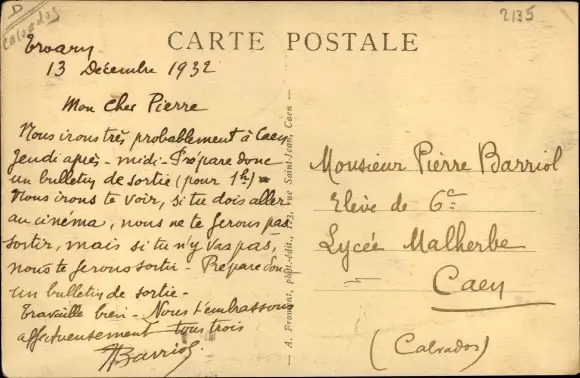 D
Calvados
2135
CARTE POSTALE
Troarn
13 Décembre 1932
Mon cher Pierre
Nous irons très probablement à Caen
Jeudi après-midi - Prépare donc
un bulletin de sortie (pour 1h) -
Nous irons te voir, si tu dois aller
au cinéma, nous ne te ferons pas
sortir, mais si tu n'y vas pas,
nous te ferons sortir - Prépare donc
un bulletin de sortie -
travaille bien - Nous t'embrassons
affectueusement tous trois
Barriol.
A. Froment, phot.-édit., 123, rue Saint-Jean, Caen
Monsieur Pierre Barriol
Elève de 6e
Lycée Malherbe
Caen
(Calvados)